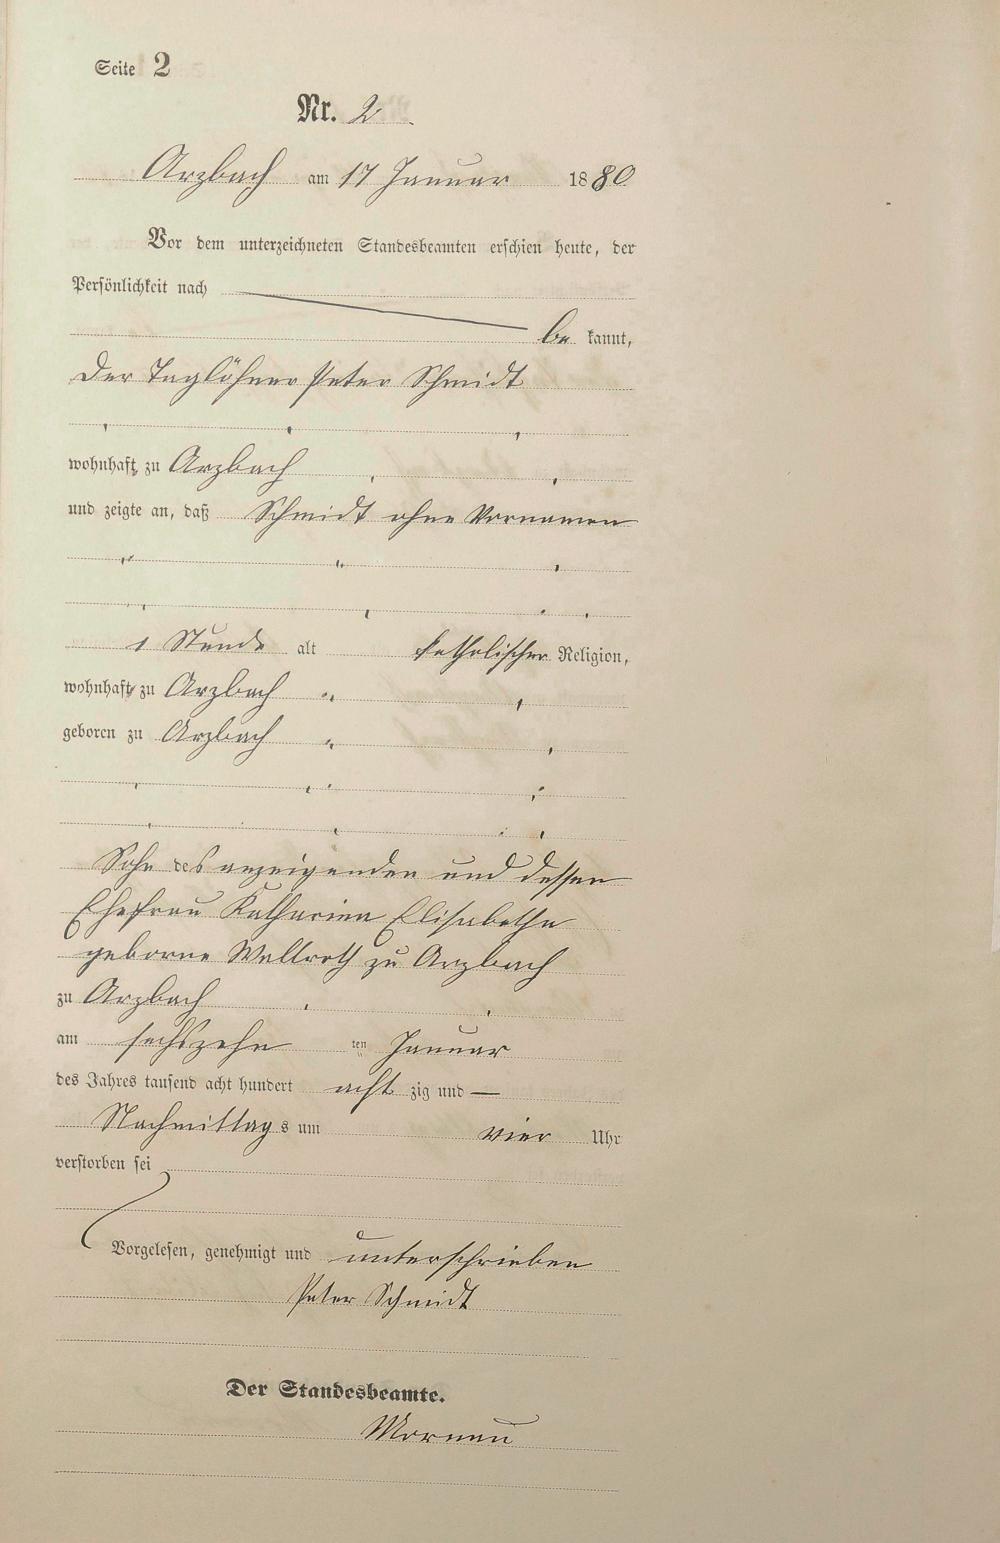 Seite 2
Nr. 2.
Arzbach am 17 Januar 1880.
Vor dem unterzeichneten Standesbeamten erschien heute, der
Persönlichkeit nach
be kannt,
der Taglöhner Peter Schmidt
wohnhaft zu Arzbach
und zeigte an, daß Schmidt ohne Vornamen
1 Stunde alt katholischer Religion,
wohnhaft zu Arzbach
geboren zu Arzbach
Sohn des anzeigenden und dessen
Ehefrau Katharina Elisabetha
geborne Wellroth zu Arzbach
zu Arzbach
am sechszehn ten Januar
des Jahres tausend acht hundert acht zig und —
Nachmittags um vier Uhr
verstorben sei
Vorgelesen, genehmigt und unterschrieben
Peter Schmidt
Der Standesbeamte.